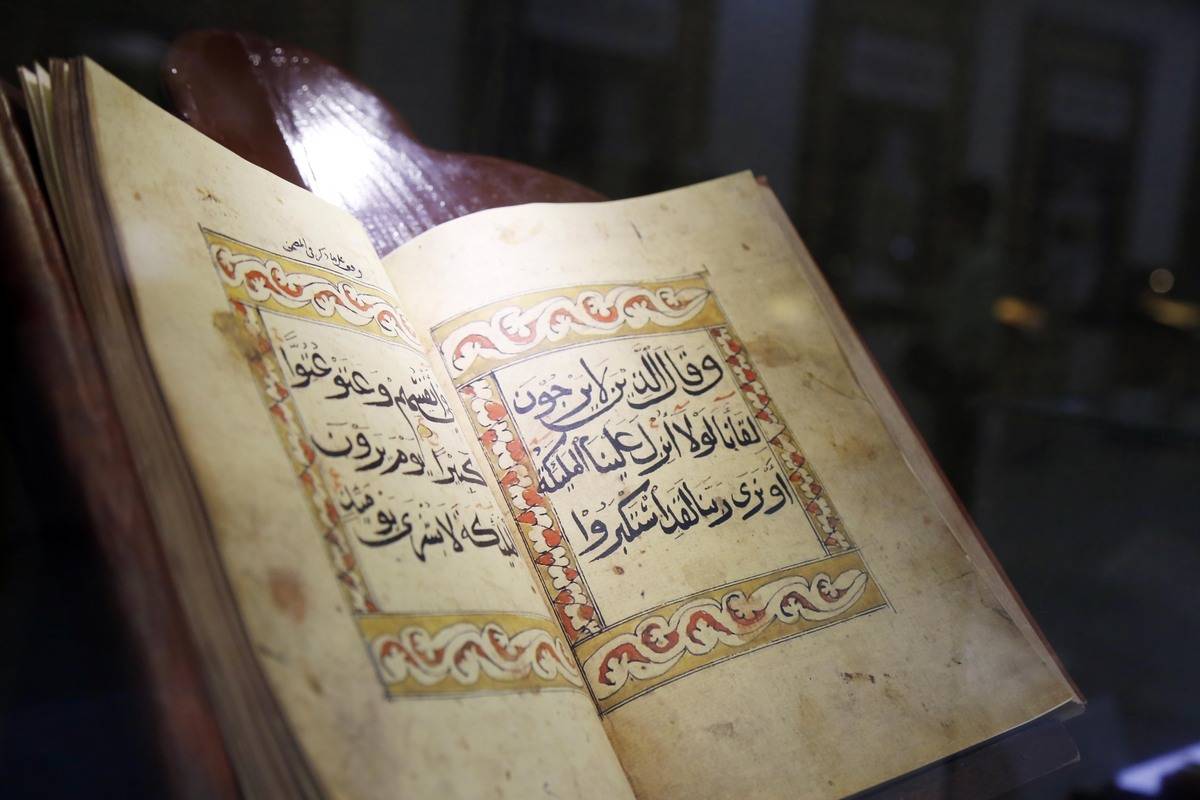 وَقَالَ الَّذِينَ لَا يَرْجُونَ
لقَآنَا لَوْلَا أُنزِلَ عَلَيْنَا الْمَلٰئِكَةُ
اَوْ نَرَى رَبَّنَا لَقَدِ اسْتَكْبَرُوا
انفُسِهِم وَعَتَوْ عُتُوًّا
كَبِيرًا يَوْمَ يَرَوْنَ
لَا بُشْرَى يَوْمَئِذٍ